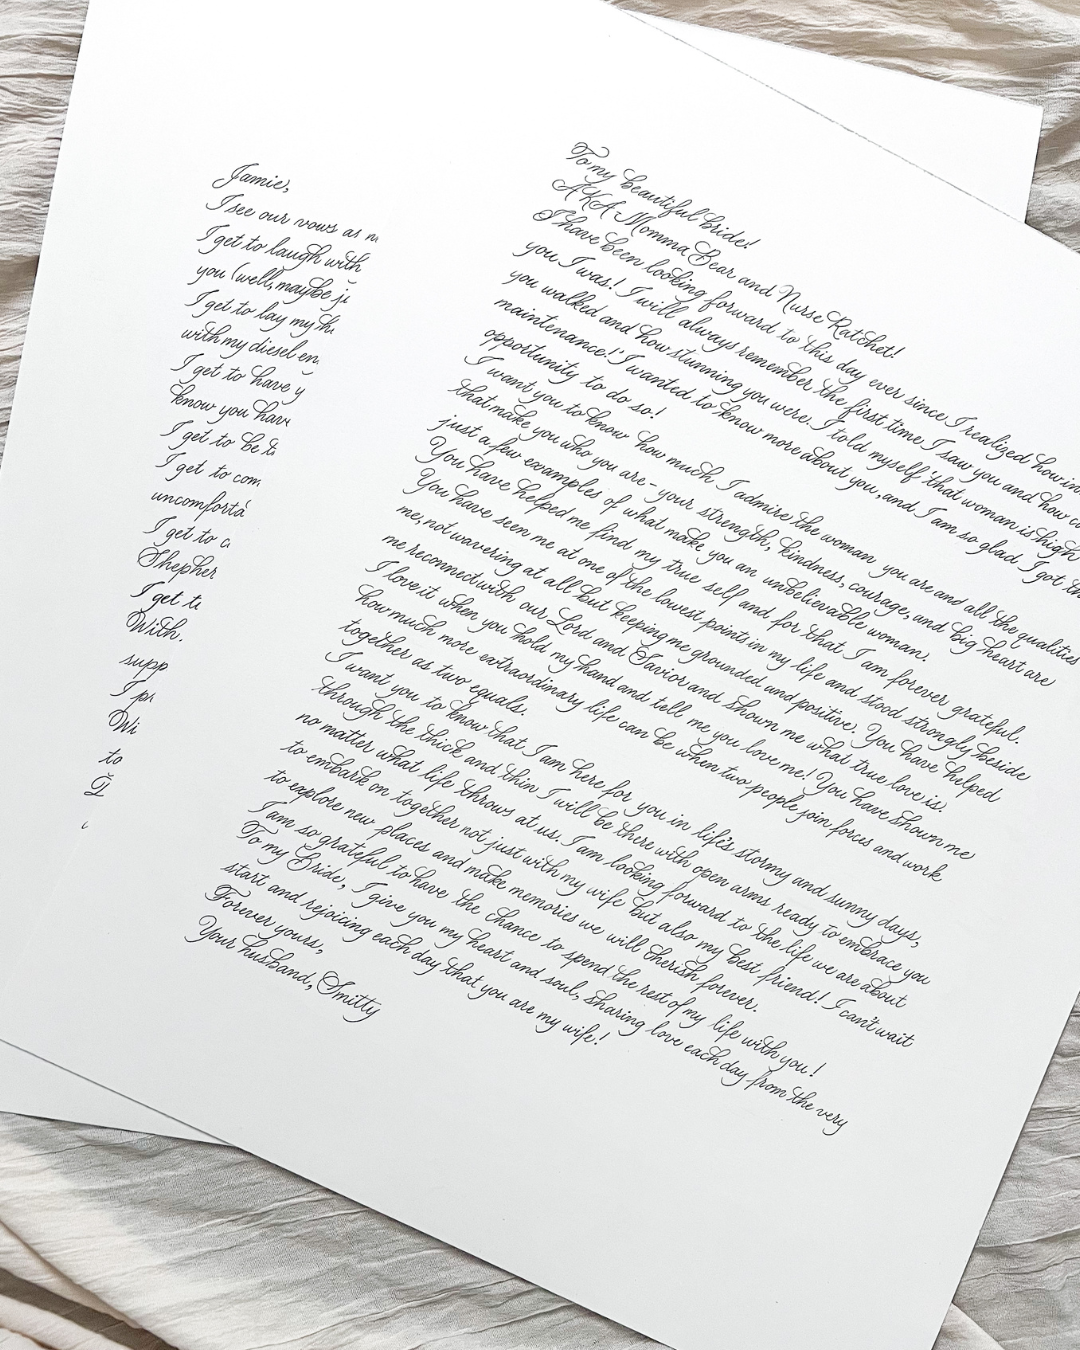 Jamie,
I see our vows as
I get to laugh with
you (well, maybe
I get to lay my
with my diesel
I get to have y
know you have
I get to be
I get to com
uncomforta
I get to
Shepher
I get t
With.
supp
I pr
Wi
to
To my beautiful bride!
AKA Momma Bear and Nurse Ratchet!
I have been looking forward to this day ever since I realized how in
you I was! I will always remember the first time I saw you and how
you walked and how stunning you were. I told myself 'that woman is high
maintenance!' I wanted to know more about you, and I am so glad I got the
opportunity to do so!
I want you to know how much I admire the woman you are and all the qualities
that make you who you are - your strength, kindness, courage, and big heart are
just a few examples of what make you an unbelievable woman.
You have helped me find my true self and for that I am forever grateful.
You have seen me at one of the lowest points in my life and stood strongly beside
me, not wavering at all but keeping me grounded and positive. You have helped
me reconnect with our Lord and Savior and shown me what true love is.
I love it when you hold my hand and tell me you love me! You have shown me
how much more extraordinary life can be when two people join forces and work
together as two equals.
I want you to know that I am here for you in life's stormy and sunny days,
through the thick and thin I will be there with open arms ready to embrace you
no matter what life throws at us. I am looking forward to the life we are about
to embark on together not just with my wife but also my best friend! I can't wait
to explore new places and make memories we will cherish forever.
I am so grateful to have the chance to spend the rest of my life with you!
To my Bride, I give you my heart and soul, sharing love each day from the very
start and rejoicing each day that you are my wife!
Forever yours,
Your husband, Smitty